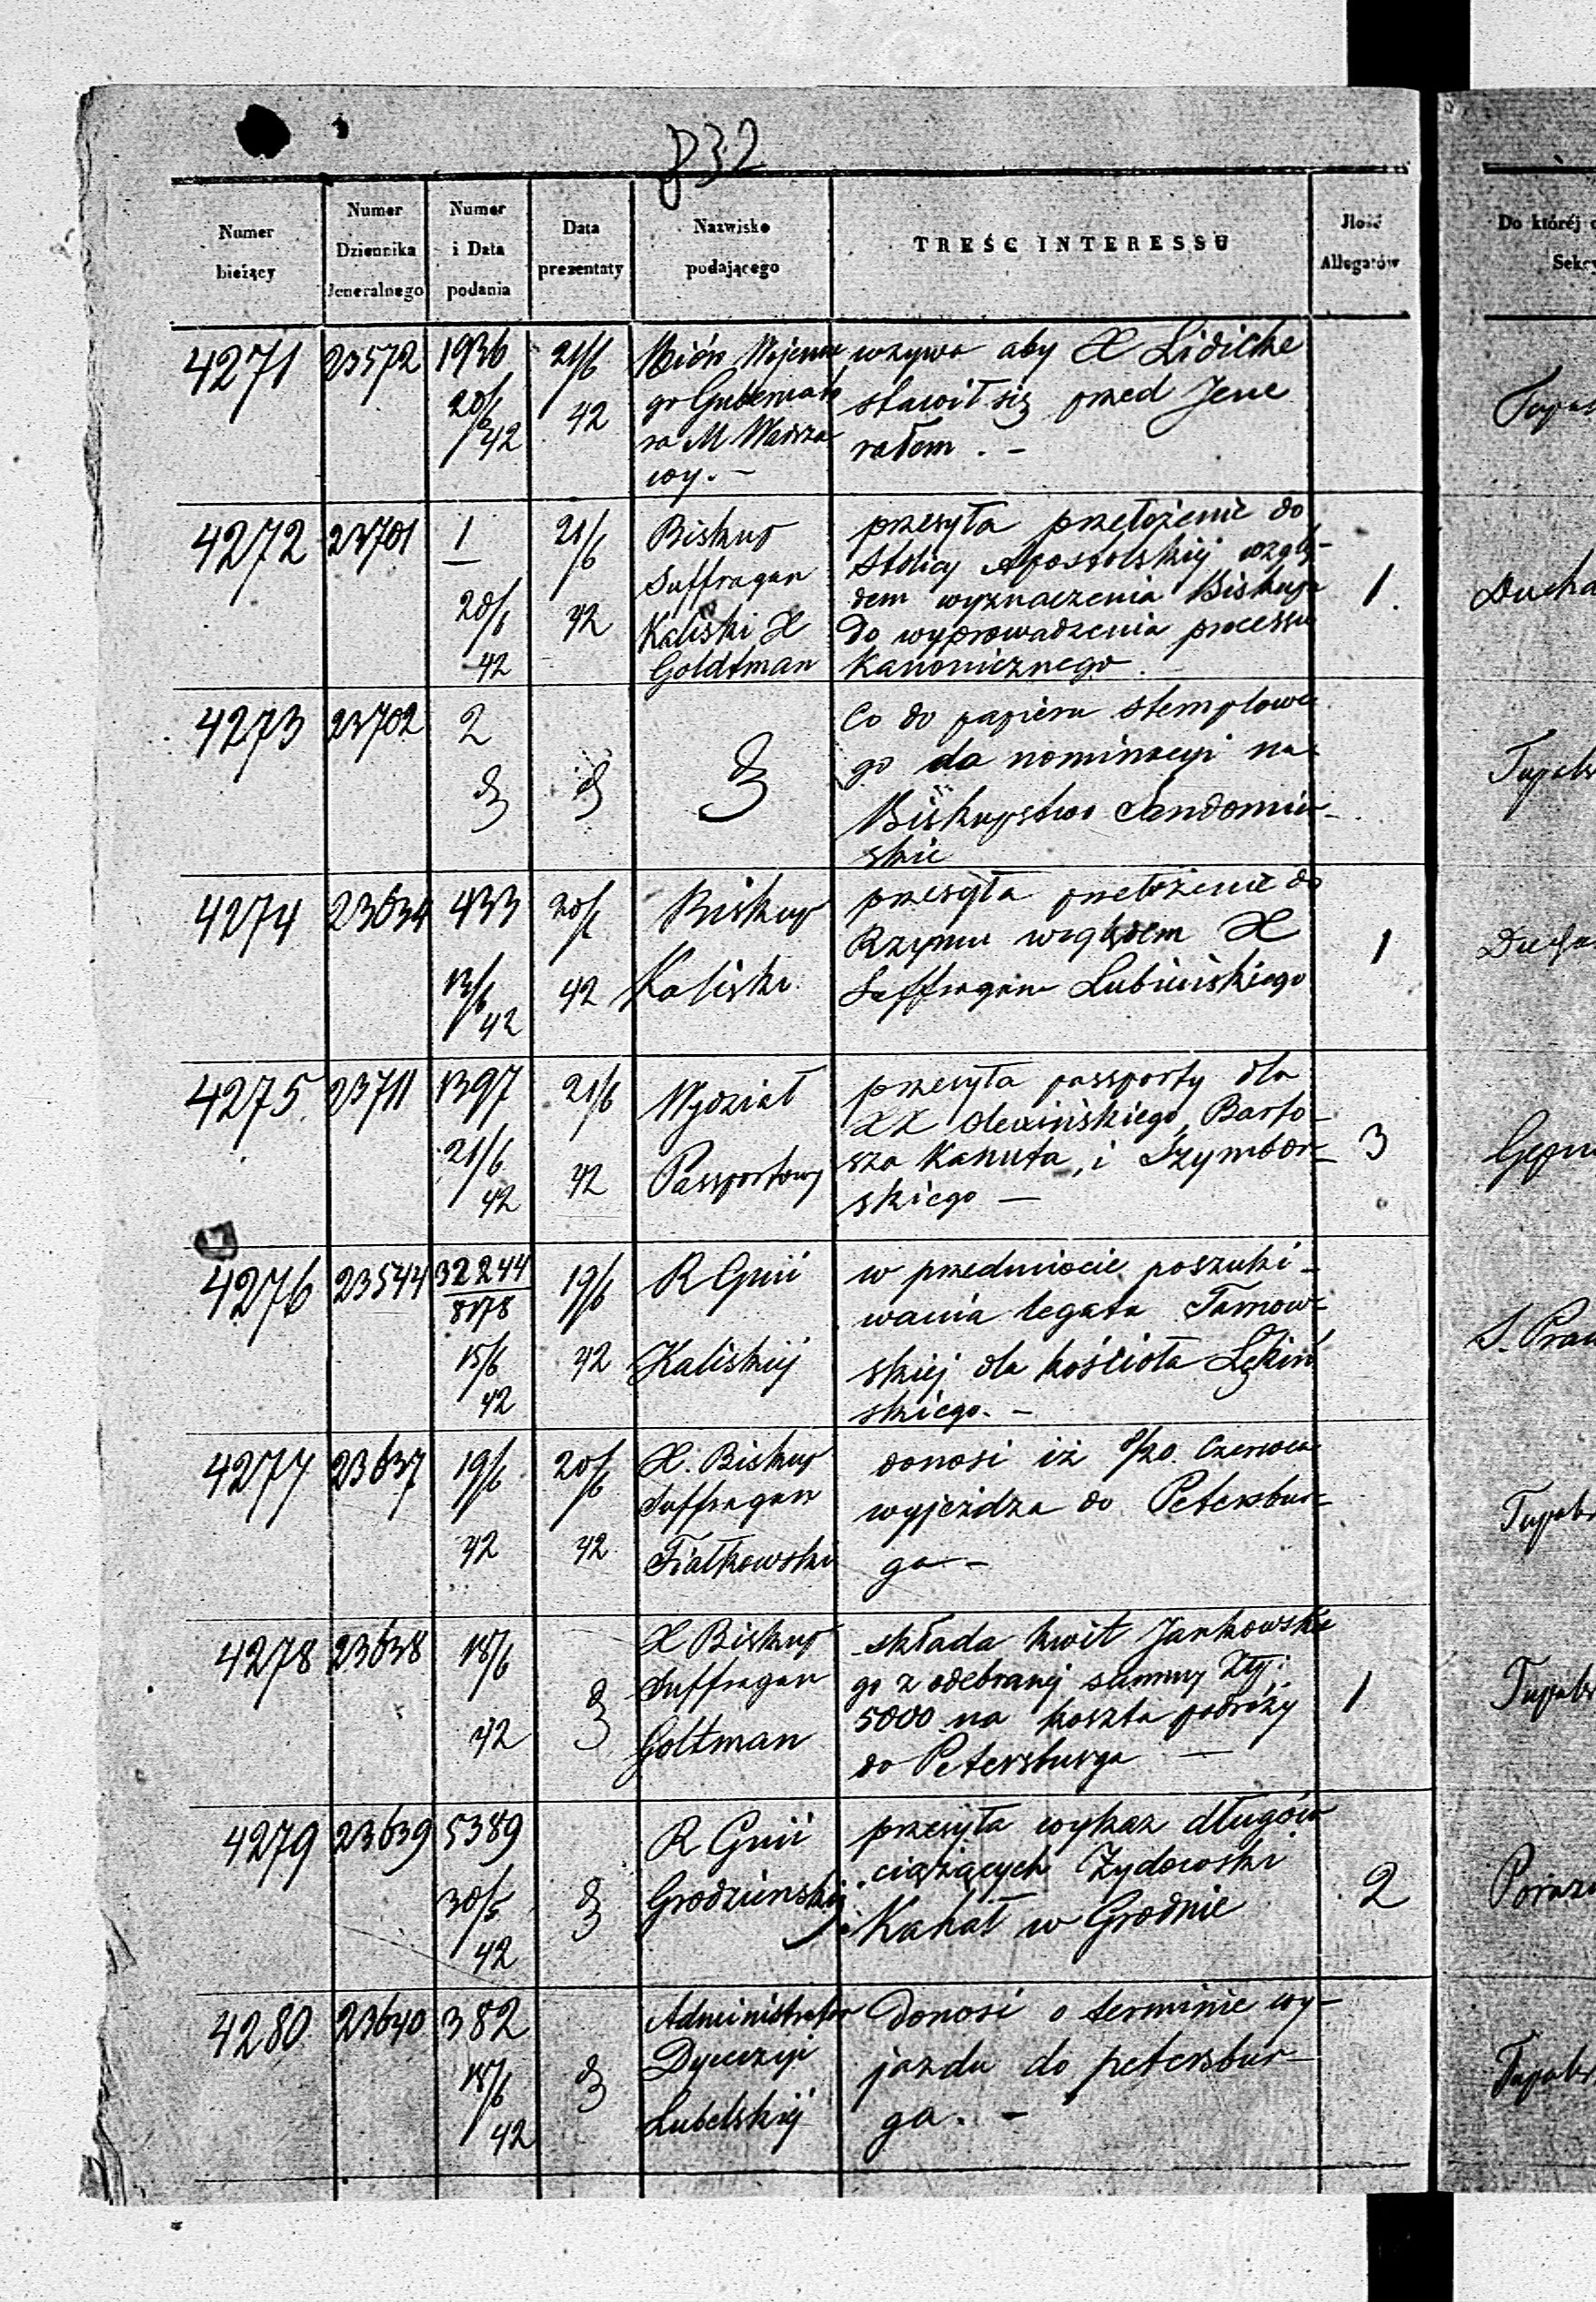 832
Numer bieżący
Numer Dziennika Jeneralnego
Numer i Data podania
Data prezentaty
Nazwisko podającego
TREŚĆ INTERESSU
Jlość Allegatów
Do której
4271 23572 1936 20/6 42 21/6 42
Wojenne
go Gubernato
ra M Warsza
wy. –
wzywa aby X Lidicke
stawił się przed Jene
rałem. –
4272 23701 1 20/6 42 21/6 42
Biskup
Suffragan
Kaliski X
Goldtman
przesyła przełożenie do
Stolicy Apostolskiej wzglę-
dem wyznaczenia Biskupa
do wyprowadzenia processu
Kanonicznego.
1.
4273 23702 2
Co do papieru stemplowe
go do nominacyi na
Biskupstwo Sandomir-
skie
4274 23634 433 13/6 42 20/6 42
Biskup
Kaliski
przesyła przełożenie do
Rzymu względem X
Suffragana Lubieńskiego
1
4275 23711 1397 21/6 42 21/6 42
Wydział
Passportowy
przesyła passporty dla
XX Olewińskiego, Barto-
sza Kanuta, i Szymbor-
skiego –
3
4276 23544 32244/8178 15/6 42 19/6 42
R Gnii
Kaliskiej
w przedmiocie poszuki-
wania legatu Tarnow-
skiej dla kościoła Lękiń
skiego. –
4277 23637 19/6 42 20/6 42
X. Biskup
Suffragan
Fiałkowski
donosi iż 8/20 Czerwca
wyjeżdża do Petersbur-
ga –
4278 23638 18/6 42
X Biskup
Suffragan
Goltman
składa kwit Jankowskie
go z odebranej summy Złp:
5000 na koszta podróży
do Petersburga –
1
4279 23639 5389 30/5 42
R Gnii
Grodzieńskiej
przesyła wykaz długów
ciążących Żydowski
Kahał w Grodnie
2
4280 23640 382 18/6 42
Administrator
Dyecezyi
Lubelskiej
Donosi o terminie wy-
jazdu do petersbur-
ga. –